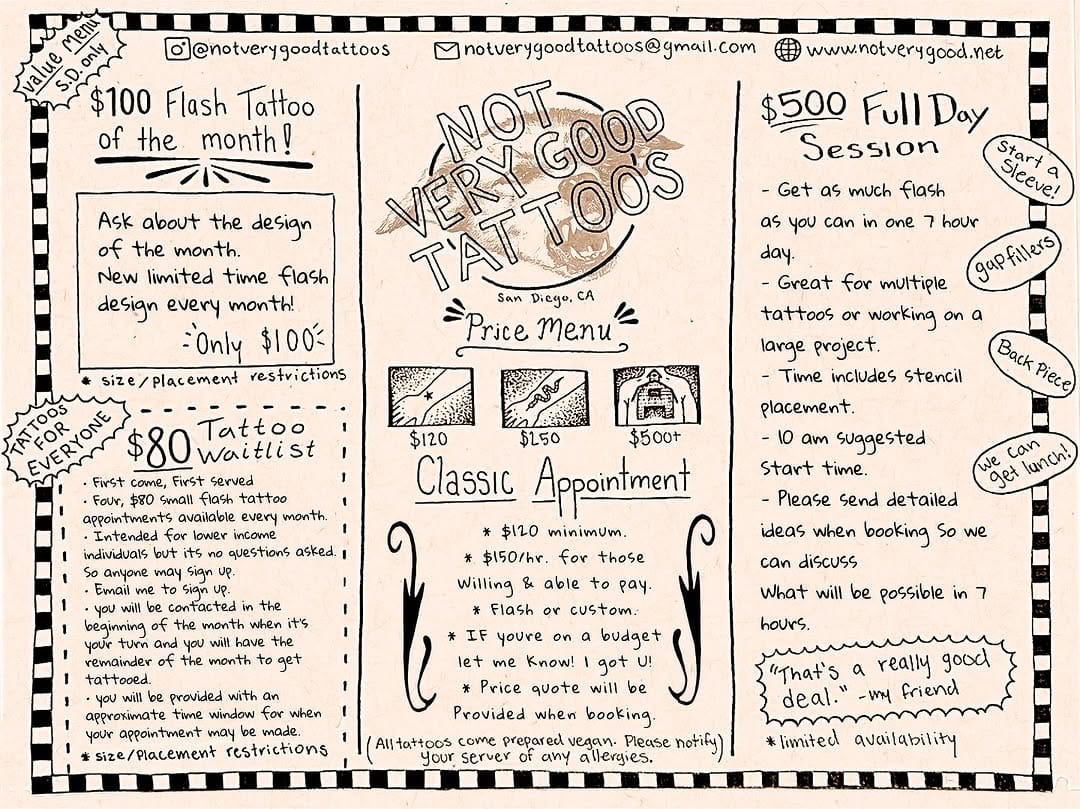 value menu
S.D. only
@notverygoodtattoos
notverygoodtattoos@gmail.com
www.notverygood.net
$100 Flash Tattoo
of the month!
Ask about the design
of the month.
New limited time flash
design every month!
Only $100
* size/placement restrictions
TATTOOS
FOR
EVERYONE
$80 Tattoo
Waitlist
· First come, First served
· Four, $80 small flash tattoo
appointments available every month.
· Intended for lower income
individuals but its no questions asked.
So anyone may sign up.
· Email me to sign up.
· you will be contacted in the
beginning of the month when it's
your turn and you will have the
remainder of the month to get
tattooed.
· you will be provided with an
approximate time window for when
your appointment may be made.
* size/placement restrictions
NOT
VERY GOOD
TATTOO'S
San Diego, CA
Price Menu
$120
$250
$500+
Classic Appointment
* $120 minimum.
* $150/hr. for those
willing & able to pay.
* Flash or custom.
* IF youre on a budget
let me know! I got U!
* Price quote will be
Provided when booking.
(All tattoos come prepared vegan. Please notify
your server of any allergies.)
$500 Full Day
Session
- Get as much flash
as you can in one 7 hour
day.
- Great for multiple
tattoos or working on a
large project.
- Time includes stencil
placement.
- 10 am suggested
Start time.
- Please send detailed
ideas when booking So we
can discuss
What will be possible in 7
hours.
Start a
Sleeve!
gap fillers
Back Piece
we can
get lunch!
"That's a really good
deal." -my friend
*limited availability